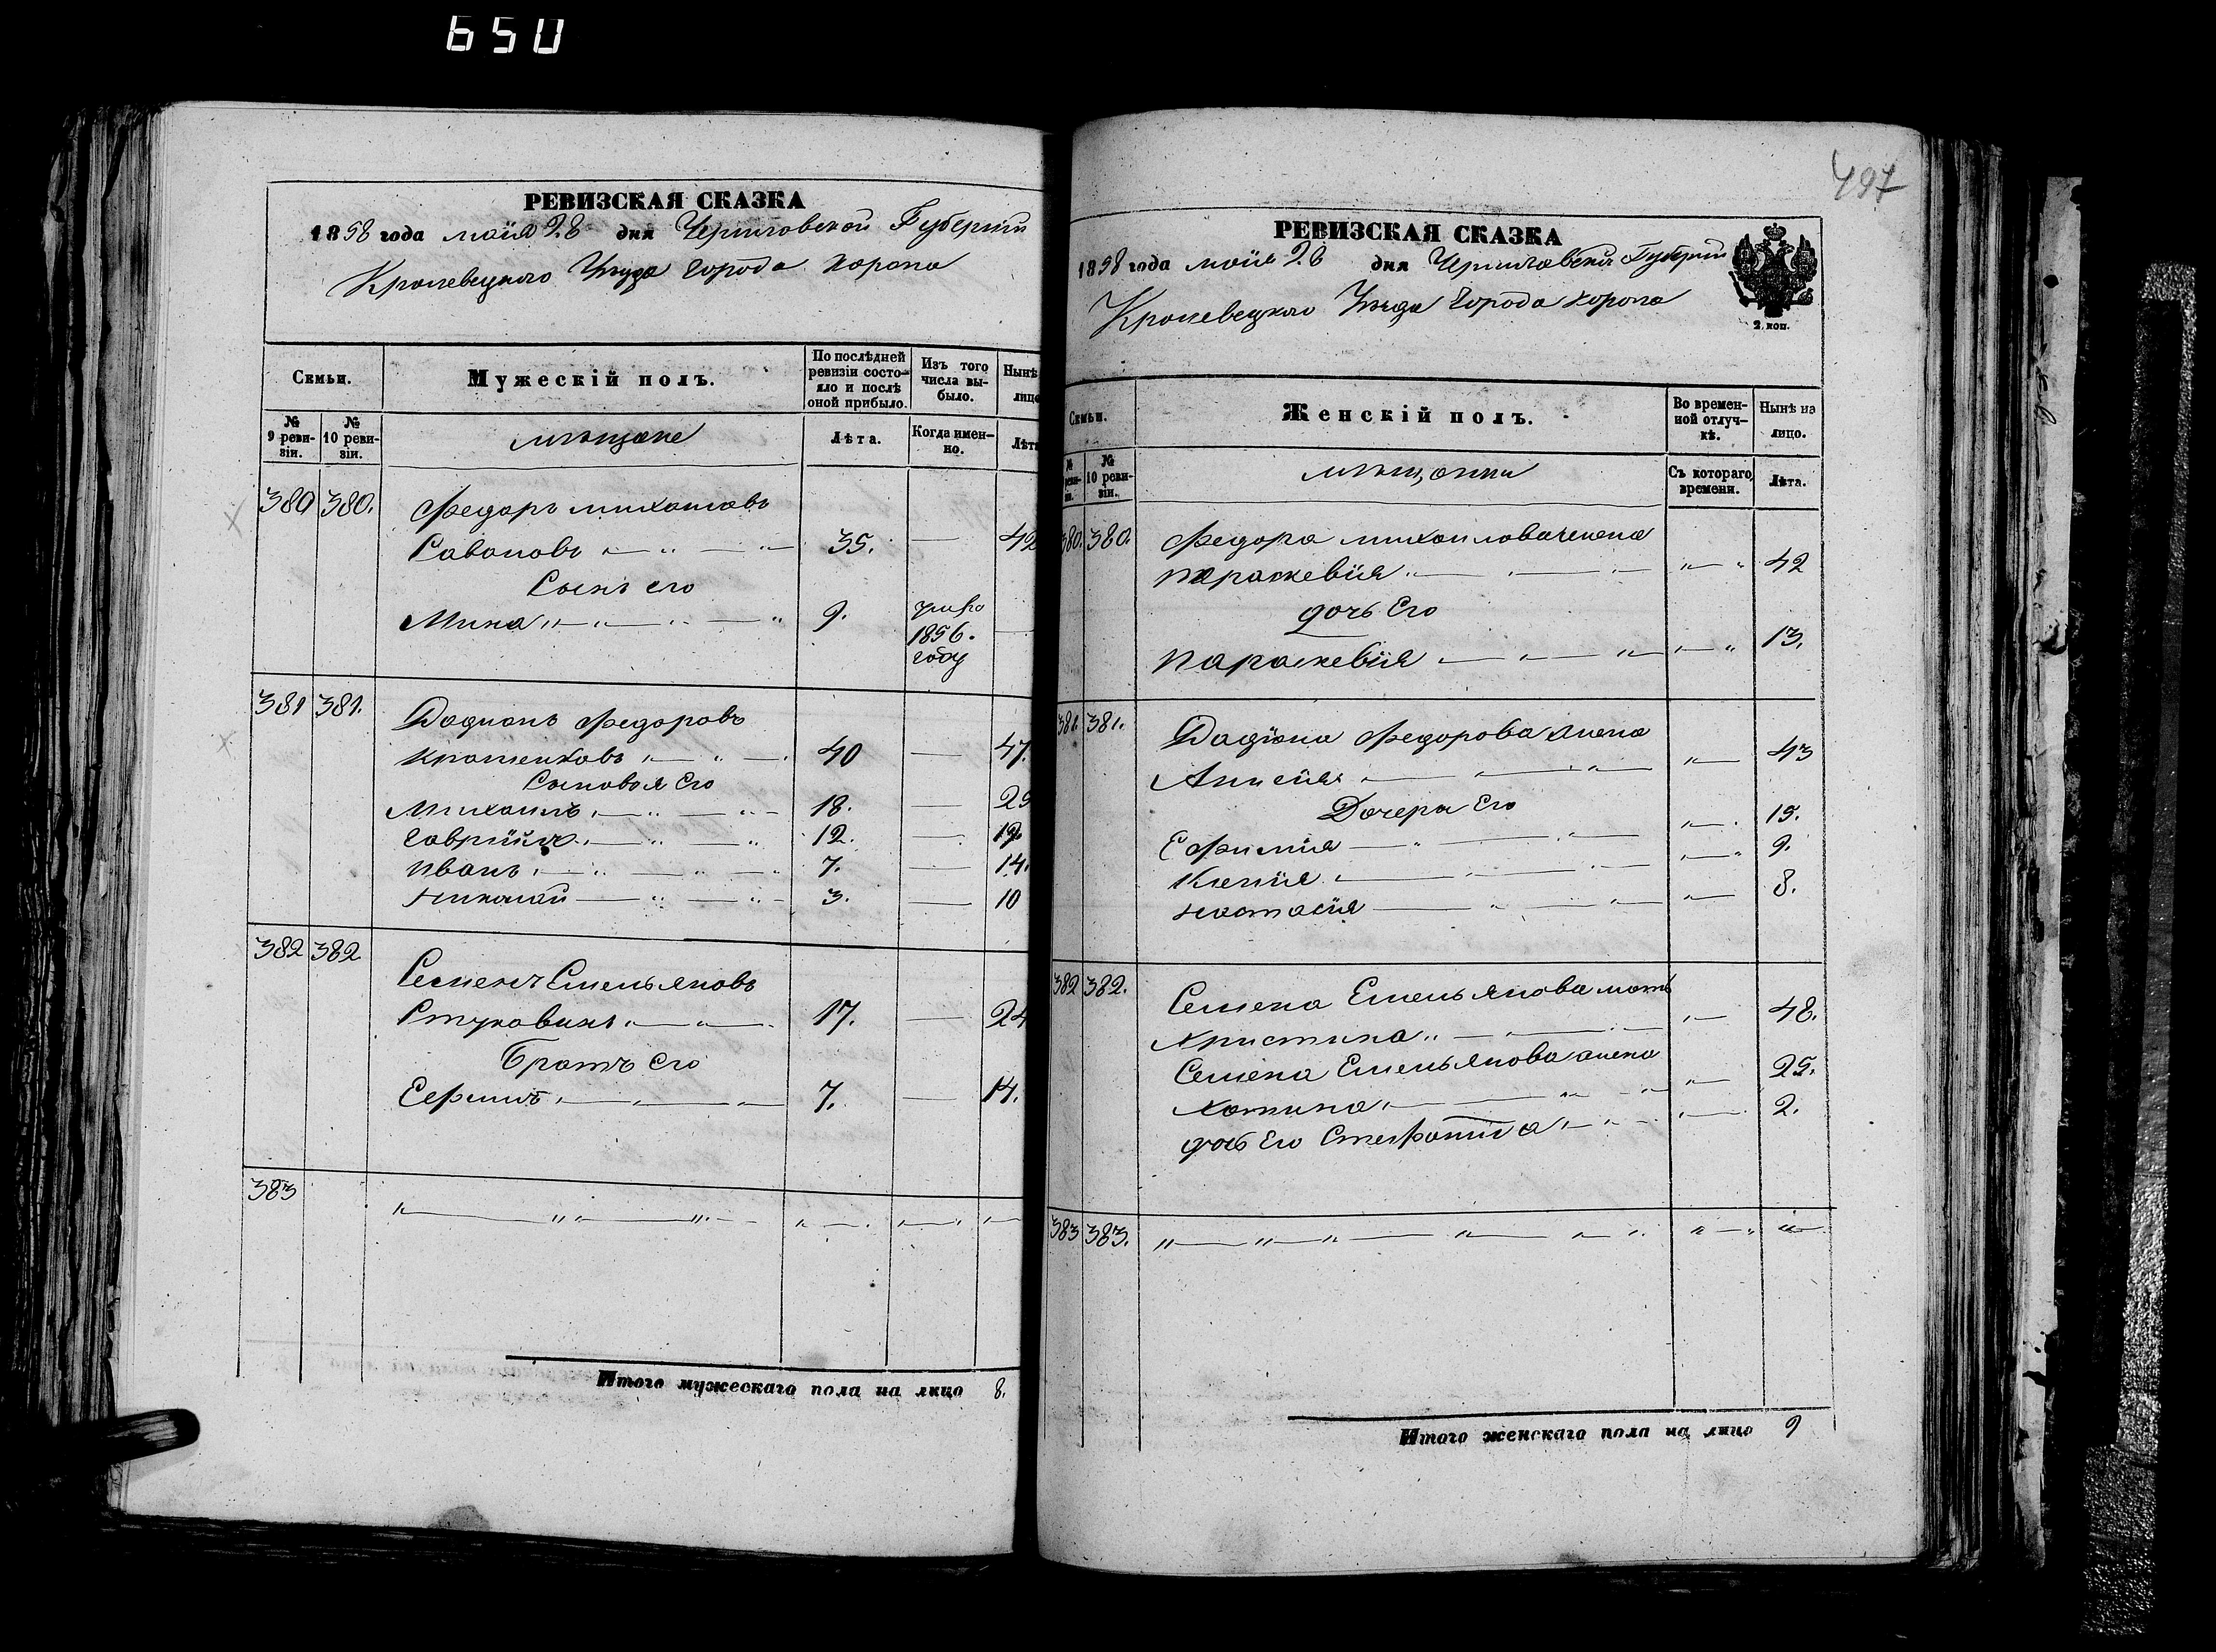 650
РЕВИЗСКАЯ СКАЗКА
1858 года мая 28 дня Черниговской Губернии
Кролевецкого Уезда города Коропа
Семьи.
Мужескій полъ.
По послѣдней ревизіи состояло и послѣ оной прибыло.
Изъ того числа выбыло.
Нынѣ
лице
№ 9 ревизіи.
№ 10 ревизіи.
мѣщане
Лѣта.
Когда именно.
Лѣт
380 380. Федоръ Михайловъ
35. — 42
Сынъ его
Мина 9. 1856. году —
381 381. Федоровъ
40 — 47.
Сыновья его
Михаилъ 18. — 25
Гавріилъ 12. — 19
Иванъ 7. — 14.
Николай 3. — 10
382 382. Семенъ Емельяновъ
17. — 24
Братъ его
Ефимъ 7. — 14.
383
Итого мужескаго пола на лицо 8.
497
РЕВИЗСКАЯ СКАЗКА
1858 года мая 28 дня Черниговской Губернии
Кролевецкого Уезда города Коропа
2. коп.
Семьи.
Женскій полъ.
Во временной отлучкѣ.
Нынѣ на лицо.
№ 10 ревизіи.
мѣщанки
Съ котораго времени.
Лѣта.
380. 380. Федора Михайлова жена
Параскевія 42
дочь Его
Параскевія 13.
381. 381. Федорова жена
43
Дочери Его
Ефимія 15.
Ксенія 9.
Настасія 8.
382 382. Семена Емельянова мать
Христина 48.
Семена Емельянова жена
25.
дочь Его Стефанида 2.
383 383.
Итого женскаго пола на лицо 9